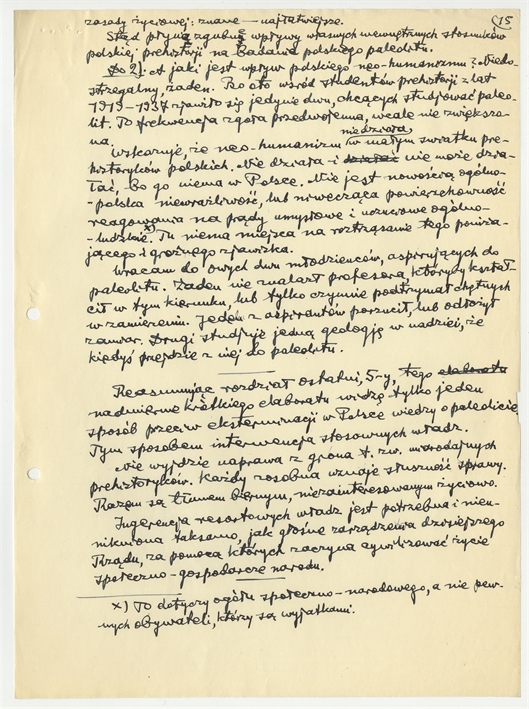 15
zasady życiowej: znane – najłatwiejsze.
Stąd płyną zgubne wpływy własnych wewnętrznych stosunków
polskiej prehistorji na badawa polskiego paleolitu.
Do 2]. A jaki jest wpływ polskiego neo-humanizmu? Niedo-
strzegalny, żaden. Bo oto wśród studentów prehistorji z lat
1919–1937 zjawiło się jedynie dwu, chcących studjować paleo-
lit. To frekwencja zgoła przedwojenna, wcale nie zwiększo-
na.
nie działa,
Wskazuje, że neo-humanizm w małym światku pre-
historyków polskich. Nie działa – i nie może dzia-
łać, bo go niema w Polsce. Nie jest nowością ogólno-
-polska niewrażliwość, lub niwecząca powierzchowność
reagowania na prądy umysłowe i uczuciowe ogólno-
-ludzkie x). Tu niema miejsca na roztrząsanie tego poniża-
jącego i groźnego zjawiska.
Wracam do owych dwu młodzieńców, aspirujących do
paleolitu. Żaden nie znalazł profesora, któryby kształ-
cił w tym kierunku, lub tylko czynnie podtrzymał chętnych
w zamierzeniu. Jeden z aspirantów porzucił, lub odłożył
zamiar. Drugi studjuje jedną geologję w nadziei, że
kiedyś przejdzie z niej do paleolitu.
Reasumując rozdział ostatni, 5-y, tego elaboratu
nadmiernie krótkiego elaboratu widzę tylko jeden
sposób przeciw eksterminacji w Polsce wiedzy o paleolicie.
Tym sposobem interwencja stosownych władz.
Nie wyjdzie naprawa z grona t. zw. miarodajnych
prehistoryków. Każdy zosobna uznaje słuszność sprawy.
Razem są tłumem biernym, niezainteresowanym życiowo.
Ingerencja resortowych władz jest potrzebna i nieu-
nikniona taksamo, jak głośne zarządzenia dzisiejszego
Rządu, za pomocą których zaczyna cywilizować życie
społeczno-gospodarcze narodu.
x) To dotyczy ogółu społeczno-narodowego, a nie pew-
nych obywateli, którzy są wyjątkami.